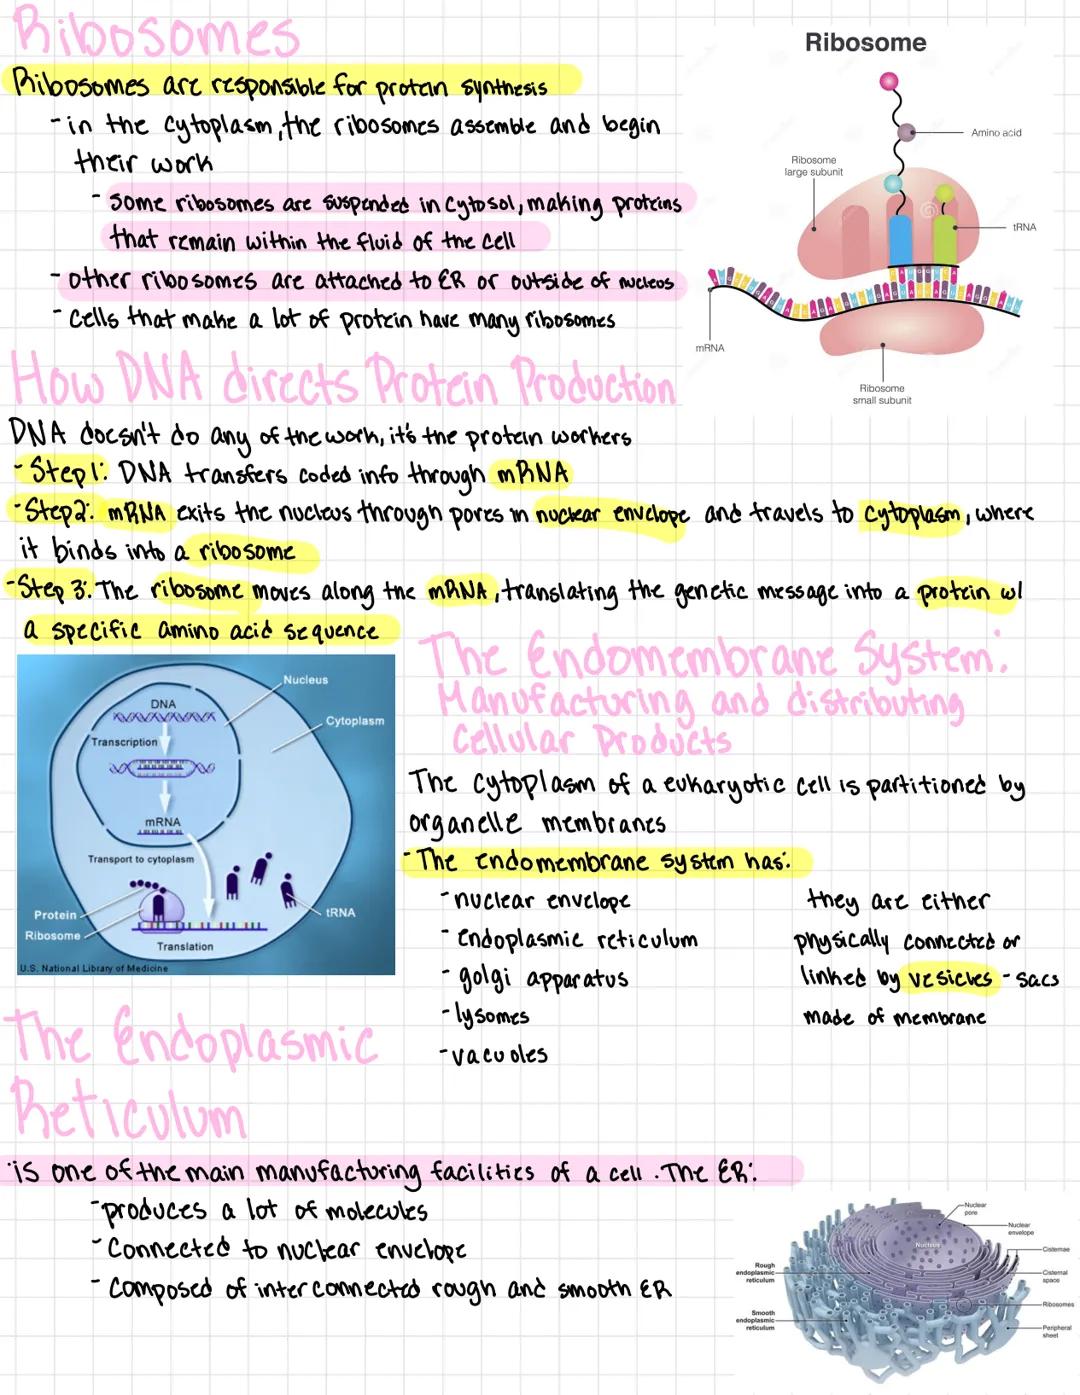 Ribosomes
Ribosomes are responsible for protein synthesis
- in the cytoplasm, the ribosomes assemble and begin
their work
- some ribosomes are suspended in cytosol, making proteins
that remain within the fluid of the cell
- other ribosomes are attached to ER or outside of nucleus
- cells that make a lot of protein have many ribosomes
Ribosome
Amino acid
Ribosome
large subunit
tRNA
mRNA
Ribosome
small subunit
How DNA directs Protein Production
DNA doesn't do any of the work, it's the protein workers
- Step 1: DNA transfers coded info through mRNA
- Step 2: mRNA exits the nucleus through pores in nuclear envelope and travels to cytoplasm, where
it binds into a ribosome
- Step 3: The ribosome moves along the mRNA, translating the genetic message into a protein w/
a specific amino acid sequence
Nucleus
DNA
Cytoplasm
Transcription
mRNA
Transport to cytoplasm
Protein
tRNA
Ribosome
Translation
U.S. National Library of Medicine
The Endomembrane System:
Manufacturing and distributing
Cellular Products
The cytoplasm of a eukaryotic cell is partitioned by
organelle membranes
- The endomembrane system has:
- nuclear envelope
- endoplasmic reticulum
- golgi apparatus
- lysomes
- vacuoles
they are either
physically connected or
linked by vesicles - sacs
made of membrane
The Endoplasmic
Reticulum
is one of the main manufacturing facilities of a cell. The ER:
- produces a lot of molecules
- Connected to nuclear envelope
- Composed of interconnected rough and smooth ER
Nuclear
pore
Nuclear
envelope
Nucleus
Cisternae
Rough
endoplasmic
reticulum
Cisternal
space
Ribosomes
Smooth
endoplasmic
reticulum
Peripheral
sheet